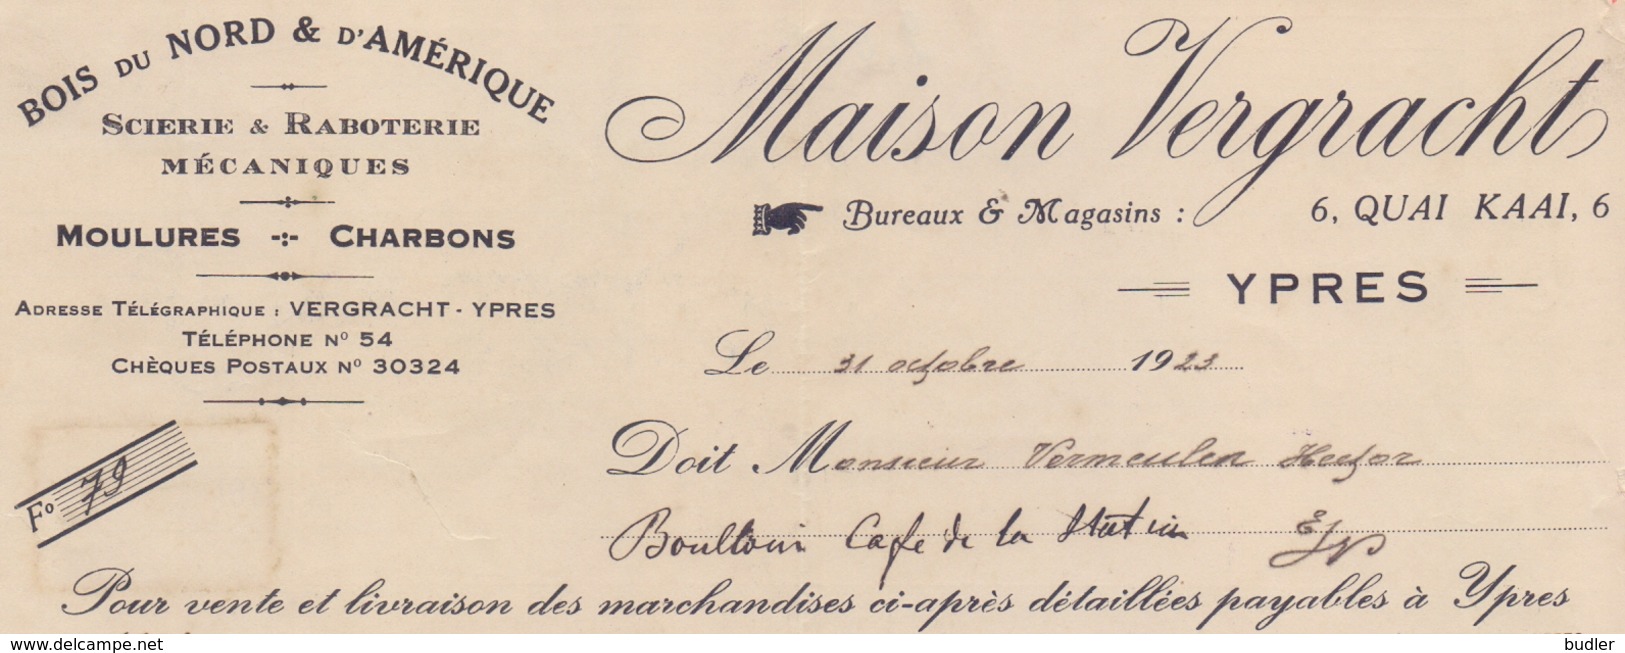 BOIS DU NORD & D'AMÉRIQUE
SCIERIE & RABOTERIE
MÉCANIQUES
MOULURES -:- CHARBONS
ADRESSE TÉLÉGRAPHIQUE : VERGRACHT - YPRES
TÉLÉPHONE Nº 54
CHÈQUES POSTAUX Nº 30324
Fº 79
Maison Vergracht
Bureaux & Magasins : 6, QUAI KAAI, 6
YPRES
Le 31 octobre 1923
Doit Monsieur Vermeulen Hector
Café de la
Pour vente et livraison des marchandises ci-après détaillées payables à Ypres
delcampe.net
budler